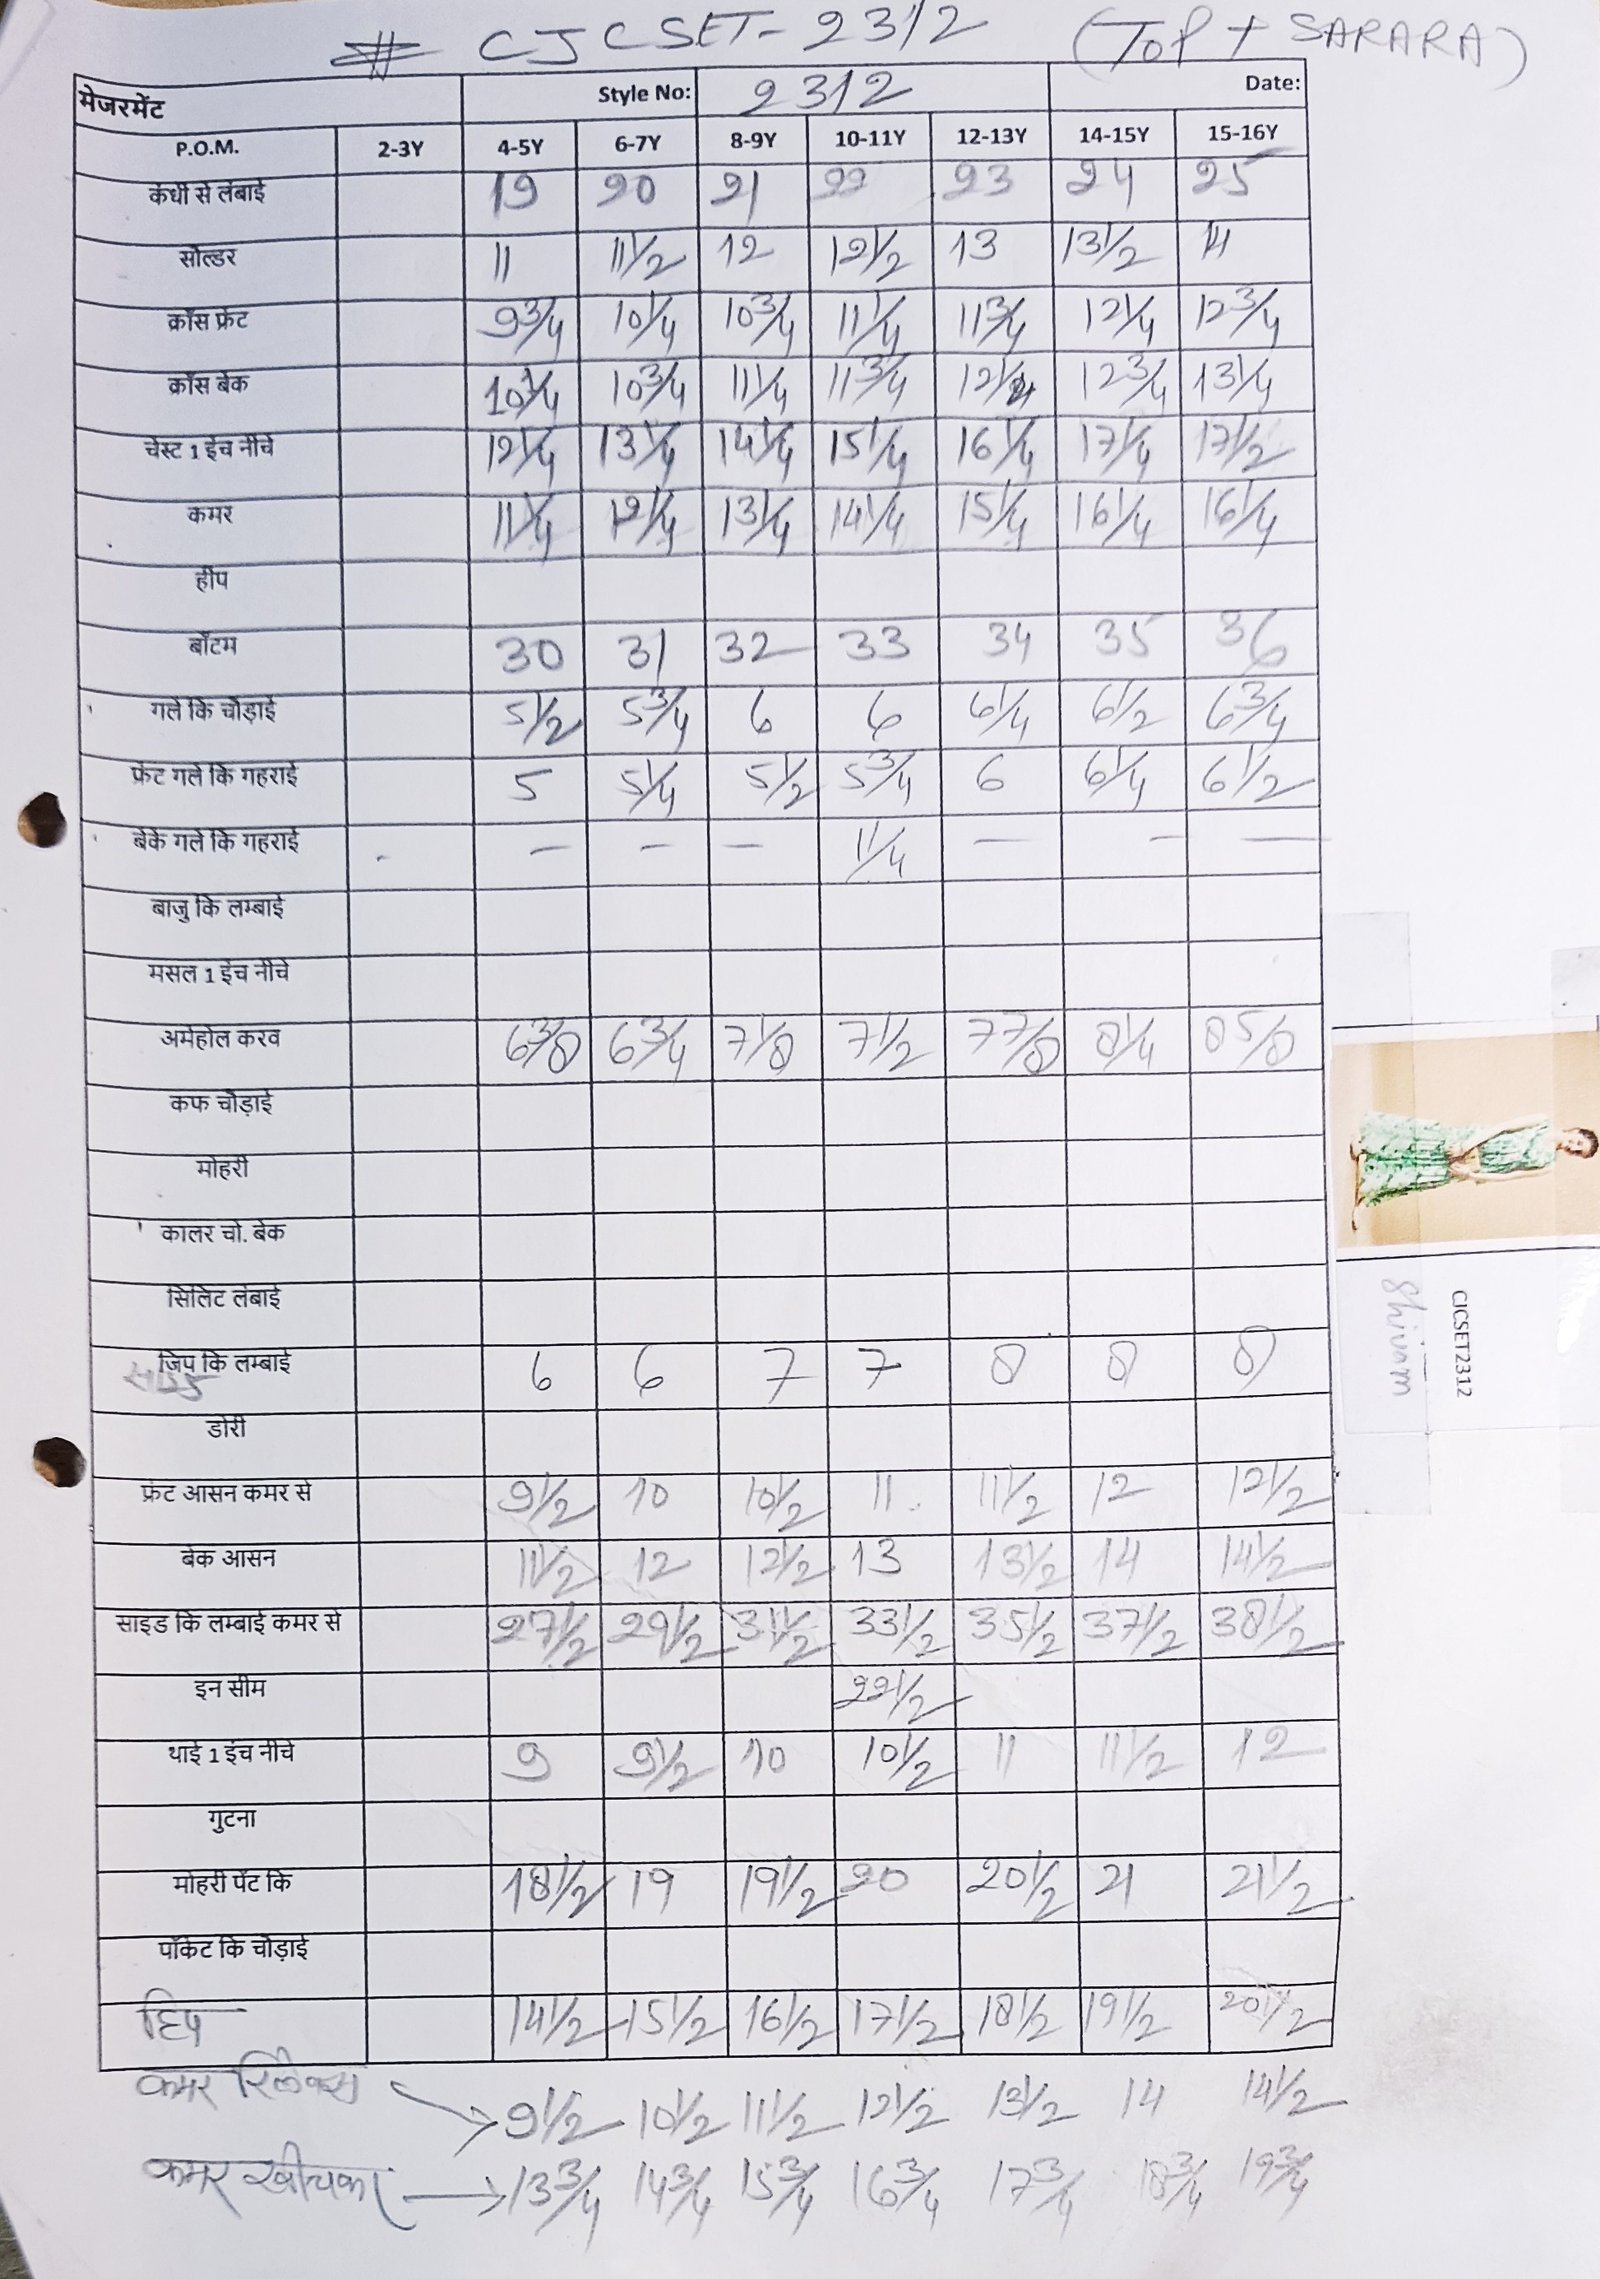 # CJCSET-2312 (TOP + SARARA)
मेजरमेंट Style No: 2312 Date:
P.O.M. 2-3Y 4-5Y 6-7Y 8-9Y 10-11Y 12-13Y 14-15Y 15-16Y
कंधी से लंबाई 19 20 21 22 23 24 25
सोल्डर 11 11 1/2 12 12 1/2 13 13 1/2 14
क्रॉस फ्रंट 9 3/4 10 1/4 10 3/4 11 1/4 11 3/4 12 1/4 12 3/4
क्रॉस बेक 10 1/4 10 3/4 11 1/4 11 3/4 12 1/4 12 3/4 13 1/4
चेस्ट 1 ईंच नीचे 12 1/4 13 1/4 14 1/4 15 1/4 16 1/4 17 1/4 17 1/2
कमर 11 1/4 12 1/4 13 1/4 14 1/4 15 1/4 16 1/4 16 1/4
हीप
बॉटम 30 31 32 33 34 35 36
गले कि चौड़ाई 5 1/2 5 3/4 6 6 6 1/4 6 1/2 6 3/4
फ्रंट गले कि गहराई 5 5 1/4 5 1/2 5 3/4 6 6 1/4 6 1/2
बेके गले कि गहराई - - - - 1 1/4 - - -
बाजु कि लम्बाई
मसल 1 ईंच नीचे
अर्महोल करव 6 3/8 6 3/4 7 1/8 7 1/2 7 7/8 8 1/4 8 5/8
कफ चौड़ाई
मोहरी
कालर चो. बेक
सिलिट लंबाई
जिप कि लम्बाई 6 6 7 7 8 8 8
साइड
डोरी
फ्रंट आसन कमर से 9 1/2 10 10 1/2 11 11 1/2 12 12 1/2
बेक आसन 11 1/2 12 12 1/2 13 13 1/2 14 14 1/2
साइड कि लम्बाई कमर से 27 1/2 29 1/2 31 1/2 33 1/2 35 1/2 37 1/2 38 1/2
इन सीम 22 1/2
थाई 1 इंच नीचे 9 9 1/2 10 10 1/2 11 11 1/2 12
गुटना
मोहरी पेंट कि 18 1/2 19 19 1/2 20 20 1/2 21 21 1/2
पॉकेट कि चौड़ाई
हिप 14 1/2 15 1/2 16 1/2 17 1/2 18 1/2 19 1/2 20 1/2
कमर रिलेक्स → 9 1/2 10 1/2 11 1/2 12 1/2 13 1/2 14 14 1/2
कमर खीचकर → 13 3/4 14 3/4 15 3/4 16 3/4 17 3/4 18 3/4 19 3/4
CJCSET2312
Shivam